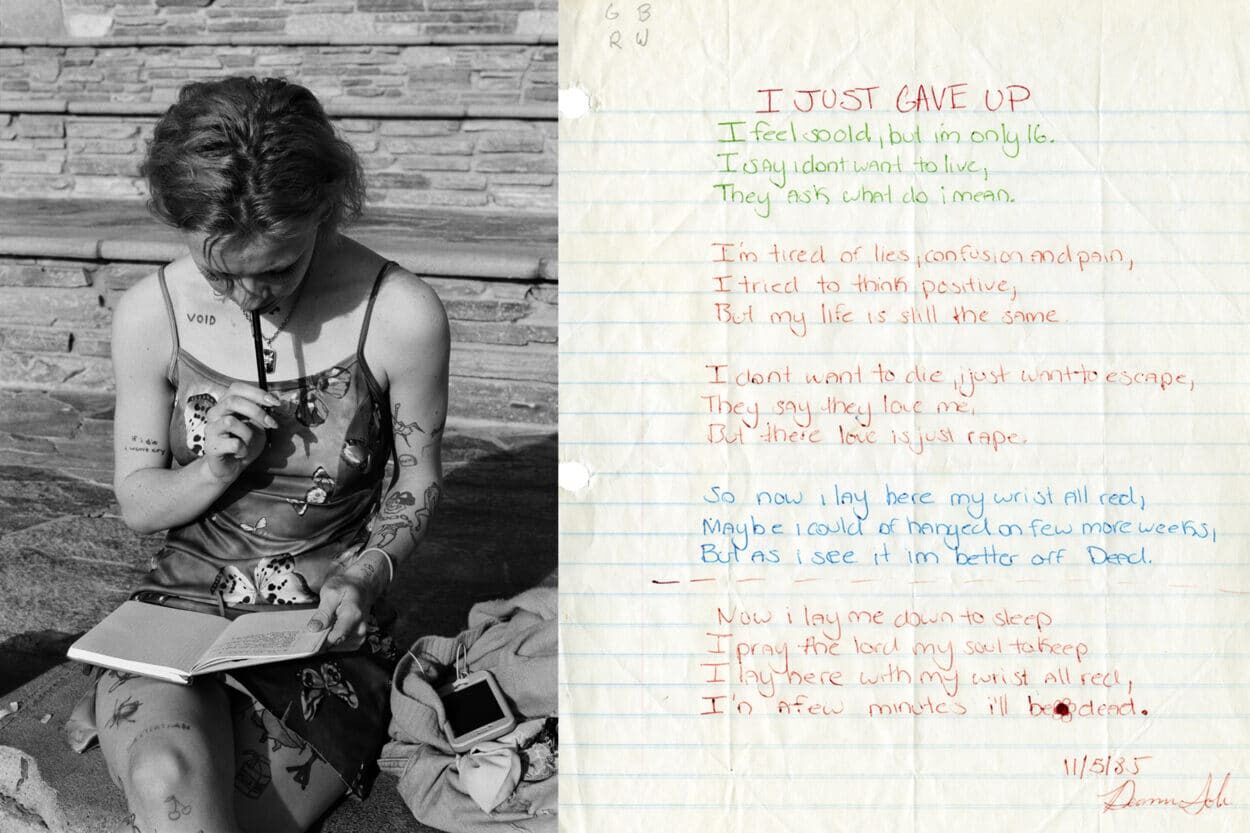 VOID
if i die
i wont cry
G B
R W
I JUST GAVE UP
I feel so old, but im only 16.
I say i dont want to live,
They ask what do i mean.
I'm tired of lies, confusion and pain,
I tried to think positive,
But my life is still the same.
I dont want to die, i just want to escape,
They say they love me,
But there love is just rape.
So now i lay here my wrist all red,
Maybe i could of hanged on few more weeks,
But as i see it im better off Dead.
Now i lay me down to sleep
I pray the lord my soul to keep
I lay here with my wrist all red,
I'n a few minutes i'll be dead.
11/5/85